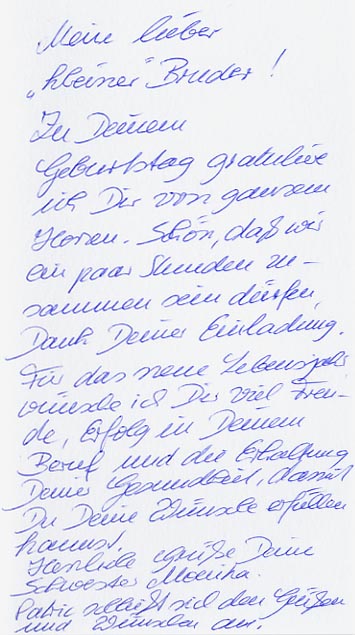 Mein lieber
„kleiner" Bruder!
Zu Deinem
Geburtstag gratuliere
ich Dir von ganzem
Herzen. Schön, daß wir
ein paar Stunden zu-
sammen sein dürfen,
Dank Deiner Einladung.
Für das neue Lebensjahr
wünsche ich Dir viel Freu-
de, Erfolg in Deinem
Beruf und die Erhaltung
Deiner Gesundheit, damit
Du Deine Wünsche erfüllen
kannst.
Herzliche Grüße Deine
Schwester Monika.
Patric schließt sich den Grüßen
und Wünschen an.